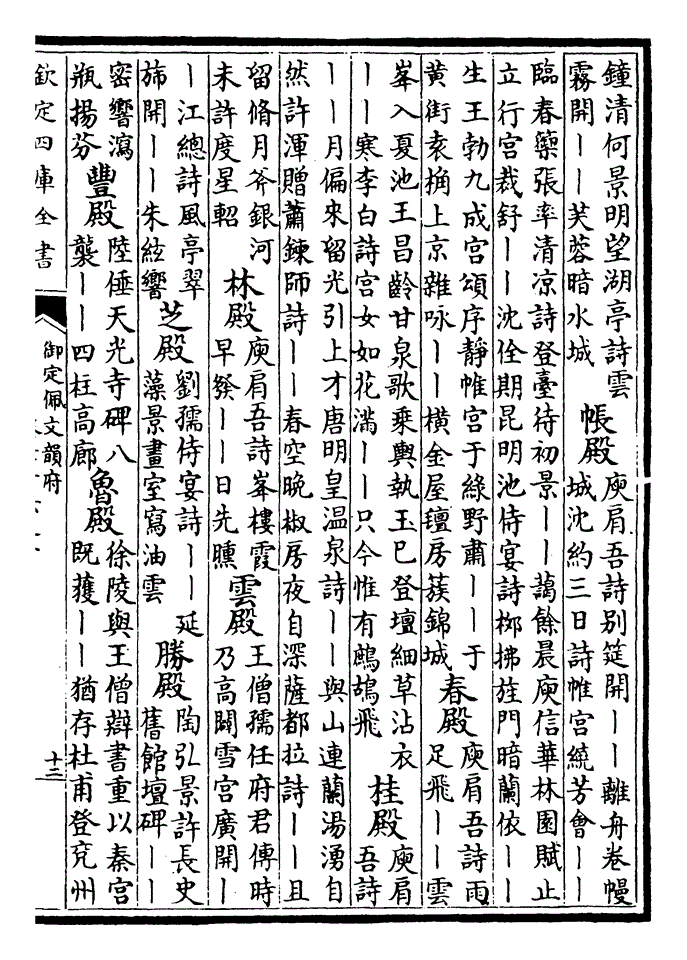 鐘清何景明望湖亭詩雲
霧開——芙蓉暗水城
帳殿
庾肩吾詩別筵開——離舟卷幔
城沈約三日詩帷宮繞芳會——
臨春籞張率清凉詩登臺待初景——藹餘晨庾信華林園賦止
立行宮裁舒——沈佺期昆明池侍宴詩栁拂旌門暗蘭依——
生王勃九成宮頌序靜帷宮于綠野肅——于
黄街袁桷上京雜咏——橫金屋氊房蔟錦城
春殿
庾肩吾詩雨
足飛——雲
峯入夏池王昌齡甘泉歌乘輿執玉巳登壇細草沾衣
——寒李白詩宫女如花滿——只今惟有鷓鴣飛
桂殿
庾肩
吾詩
——月偏來留光引上才唐明皇温泉詩——與山連蘭湯湧自
然許渾贈蕭鍊師詩——春空晩椒房夜自深薩都拉詩——且
留脩月斧銀河
未許度星軺
林殿
庾肩吾詩峯樓霞
早發——日先曛
雲殿
王僧孺任府君傳時
乃高闢雪宮廣開—
—江總詩風亭翠
斾開——朱絃響
芝殿
劉孺侍宴詩——延
藻景畫室寫油雲
勝殿
陶弘景許長史
舊館壇碑——
密響瀉
瓶揚芬
豐殿
陸倕天光寺碑八
襲——四柱高廊
魯殿
徐陵與王僧辯書重以秦宫
既獲——猶存杜甫登兖州
欽定四庫全書
御定佩文韻府
十三